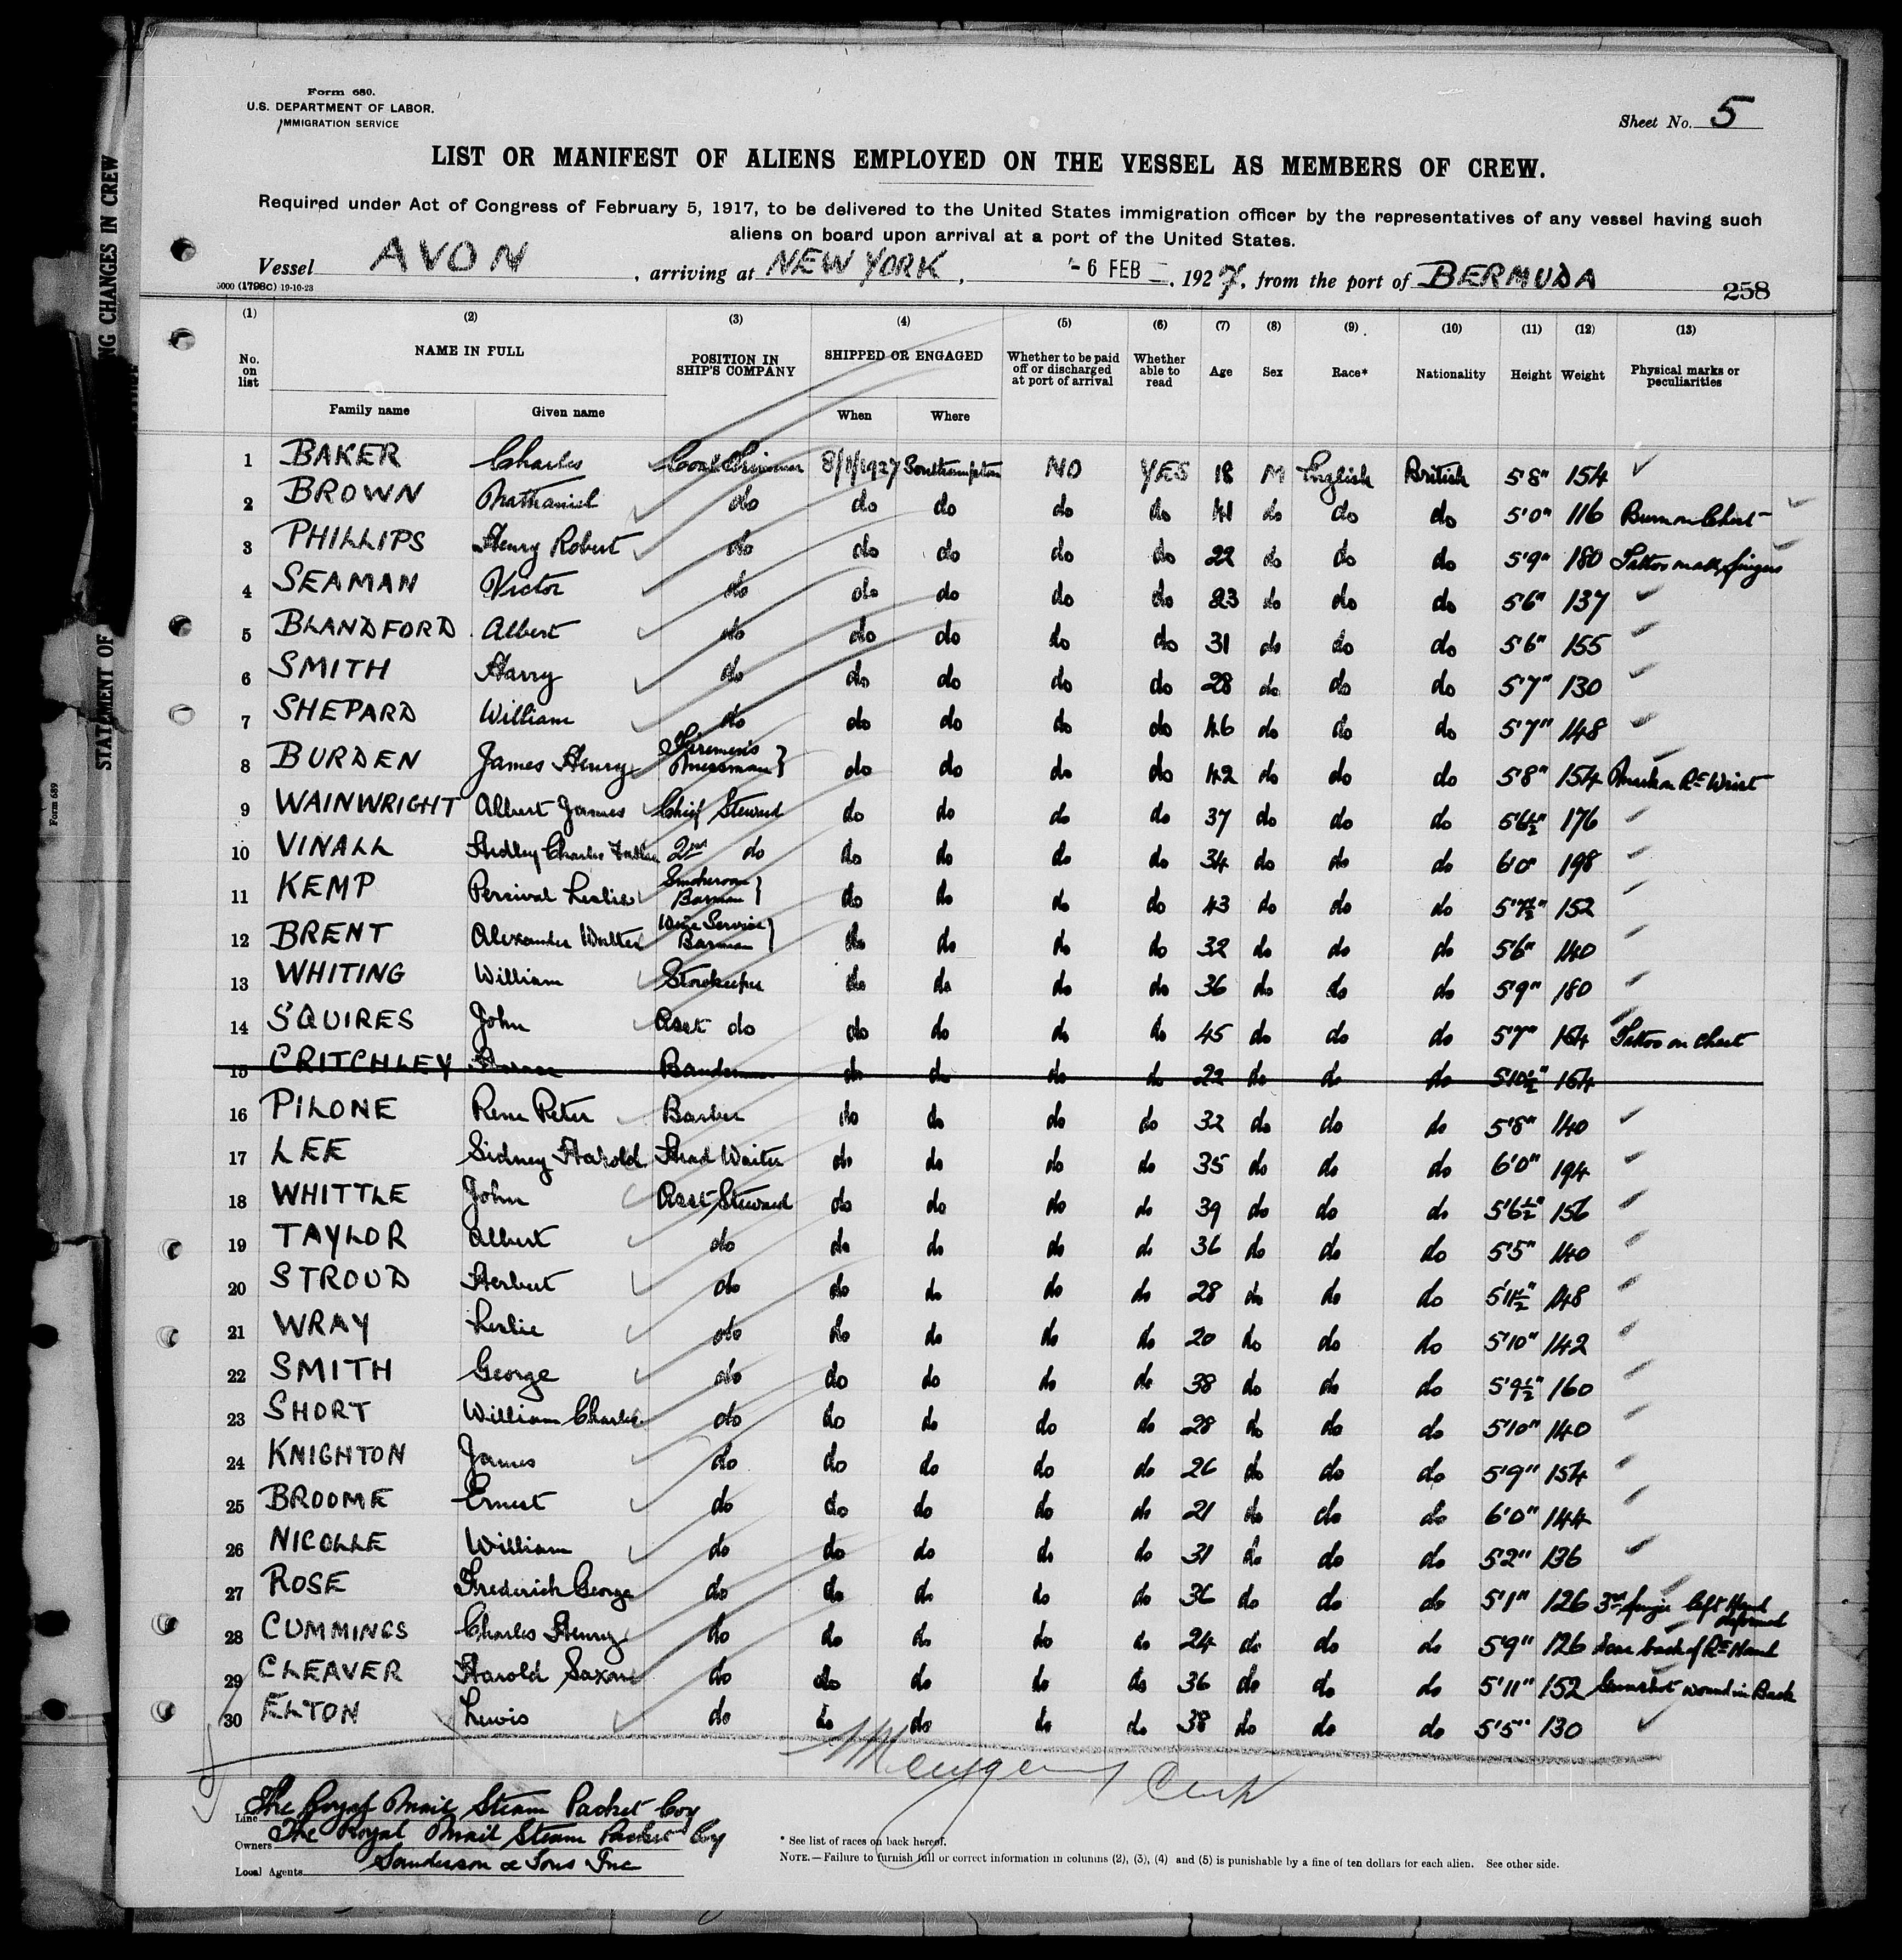 Form 680.
U.S. DEPARTMENT OF LABOR.
IMMIGRATION SERVICE
Sheet No. 5
LIST OR MANIFEST OF ALIENS EMPLOYED ON THE VESSEL AS MEMBERS OF CREW.
Required under Act of Congress of February 5, 1917, to be delivered to the United States immigration officer by the representatives of any vessel having such
aliens on board upon arrival at a port of the United States.
Vessel AVON, arriving at NEW YORK, - 6 FEB -, 1927, from the port of BERMUDA
5000 (1798C) 19-10-23
258
(1) (2) (3) (4) (5) (6) (7) (8) (9) (10) (11) (12) (13)
No. on list NAME IN FULL POSITION IN SHIP'S COMPANY SHIPPED OR ENGAGED Whether to be paid off or discharged at port of arrival Whether able to read Age Sex Race* Nationality Height Weight Physical marks or peculiarities
Family name Given name When Where
1 BAKER Charles Coal Trimmer 8/1/1927 Southampton NO YES 18 M English British 5'8" 154
2 BROWN Nathaniel do do do do do 41 do do do 5'0" 116 Burn on Chest
3 PHILLIPS Henry Robert do do do do do 22 do do do 5'9" 180 Tattoo on all fingers
4 SEAMAN Victor do do do do do 23 do do do 5'6" 137
5 BLANDFORD Albert do do do do do 31 do do do 5'6" 155
6 SMITH Harry do do do do do 28 do do do 5'7" 130
7 SHEPARD William do do do do do 46 do do do 5'7" 148
8 BURDEN James Henry Firemen's Messman } do do do do 42 do do do 5'8" 154 Mark on Rt Wrist
9 WAINWRIGHT Albert James Chief Steward do do do do 37 do do do 5'6½" 176
10 VINALL Hedley Charles 2nd do do do do do 34 do do do 6'0" 198
11 KEMP Percival Leslie Smokeroom Barman } do do do do 43 do do do 5'7½" 152
12 BRENT Alexander Walter Wine Service Barman } do do do do 32 do do do 5'6" 140
13 WHITING William Storekeeper do do do do 36 do do do 5'9" 180
14 SQUIRES John Asst do do do do do 45 do do do 5'7" 164 Tattoo on Chest
15 CRITCHLEY Bandsman do do do do 22 do do do 5'10½" 164
16 PILONE Rene Peter Barber do do do do 32 do do do 5'8" 140
17 LEE Sidney Harold Head Waiter do do do do 35 do do do 6'0" 194
18 WHITTLE John Asst Steward do do do do 39 do do do 5'6½" 156
19 TAYLOR Albert do do do do do 36 do do do 5'5" 140
20 STROUD Herbert do do do do do 28 do do do 5'11½" 148
21 WRAY Leslie do do do do do 20 do do do 5'10" 142
22 SMITH George do do do do do 38 do do do 5'9½" 160
23 SHORT William Charles do do do do do 28 do do do 5'10" 140
24 KNIGHTON James do do do do do 26 do do do 5'9" 154
25 BROOME Ernest do do do do do 21 do do do 6'0" 144
26 NICOLLE William do do do do do 31 do do do 5'2" 136
27 ROSE Frederick George do do do do do 36 do do do 5'1" 126 3rd finger left Hand deformed
28 CUMMINGS Charles Henry do do do do do 24 do do do 5'9" 126 Scar back of Rt Hand
29 CLEAVER Harold Saxon do do do do do 36 do do do 5'11" 152 Gunshot wound in Back
30 ELTON Lewis do do do do do 38 do do do 5'5" 130
Line The Royal Mail Steam Packet Coy
Owners The Royal Mail Steam Packet Coy
Local Agents Sanderson & Sons Inc
* See list of races on back hereof.
NOTE.—Failure to furnish full or correct information in columns (2), (3), (4) and (5) is punishable by a fine of ten dollars for each alien. See other side.
STATEMENT OF
NG CHANGES IN CREW
Form 689